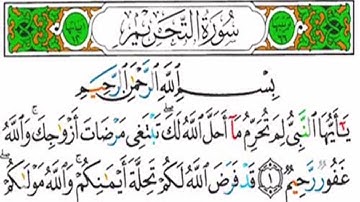 سُورَةُ التَّحْرِيمِ
بِسْمِ اللَّهِ الرَّحْمَٰنِ الرَّحِيمِ
يَٰٓأَيُّهَا النَّبِىُّ لِمَ تُحَرِّمُ مَآ أَحَلَّ اللَّهُ لَكَ ۖ تَبْتَغِى مَرْضَاتَ أَزْوَٰجِكَ ۚ وَاللَّهُ
غَفُورٌ رَّحِيمٌ ١ قَدْ فَرَضَ اللَّهُ لَكُمْ تَحِلَّةَ أَيْمَٰنِكُمْ ۚ وَاللَّهُ مَوْلَىٰكُمْ ۖ